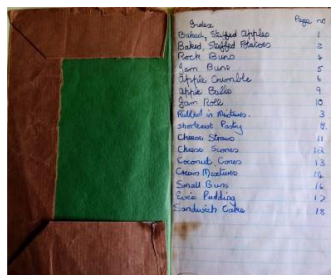 Index Page no
Baked, Stuffed Apples 1
Baked, Stuffed Potatoes 2
Rock Buns 4
Jam Buns 5
Apple Crumble 6
Apple Balls 9
Jam Rolls 10
Rubbed in Mixtures. 3
Shortcrust Pastry 8
Cheese Straws 11
Cheese Scones 12
Coconut Cones 13
Cream Mixtures 14
Small Buns 16
Eve's Pudding 17
Sandwich Cake 18